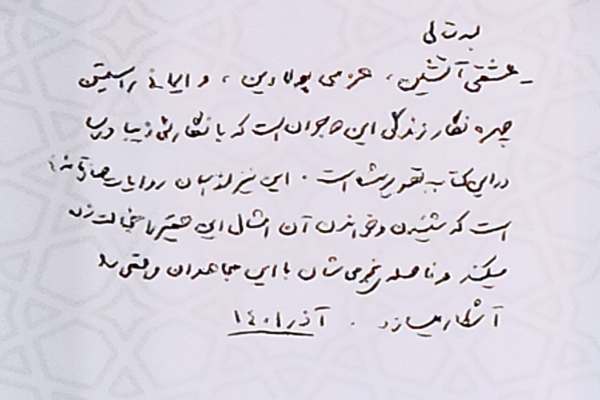 بسمه تعالی
ـ عشقی آتشین، عزمی پولادین، و ایمانی راستین
چهره نگار زندگی این جوان است که با نگارشی زیبا و رسا
در این کتاب به تصویر آمده است. این نیز از آن روایات صادقانه‌ای
است که شنیدن و خواندن آن امثال این حقیر را خجالت زده
میکند و فاصله‌ی نجومی شان با این مجاهدان واقعی را
آشکار میسازد. آذر ۱۴۰۱